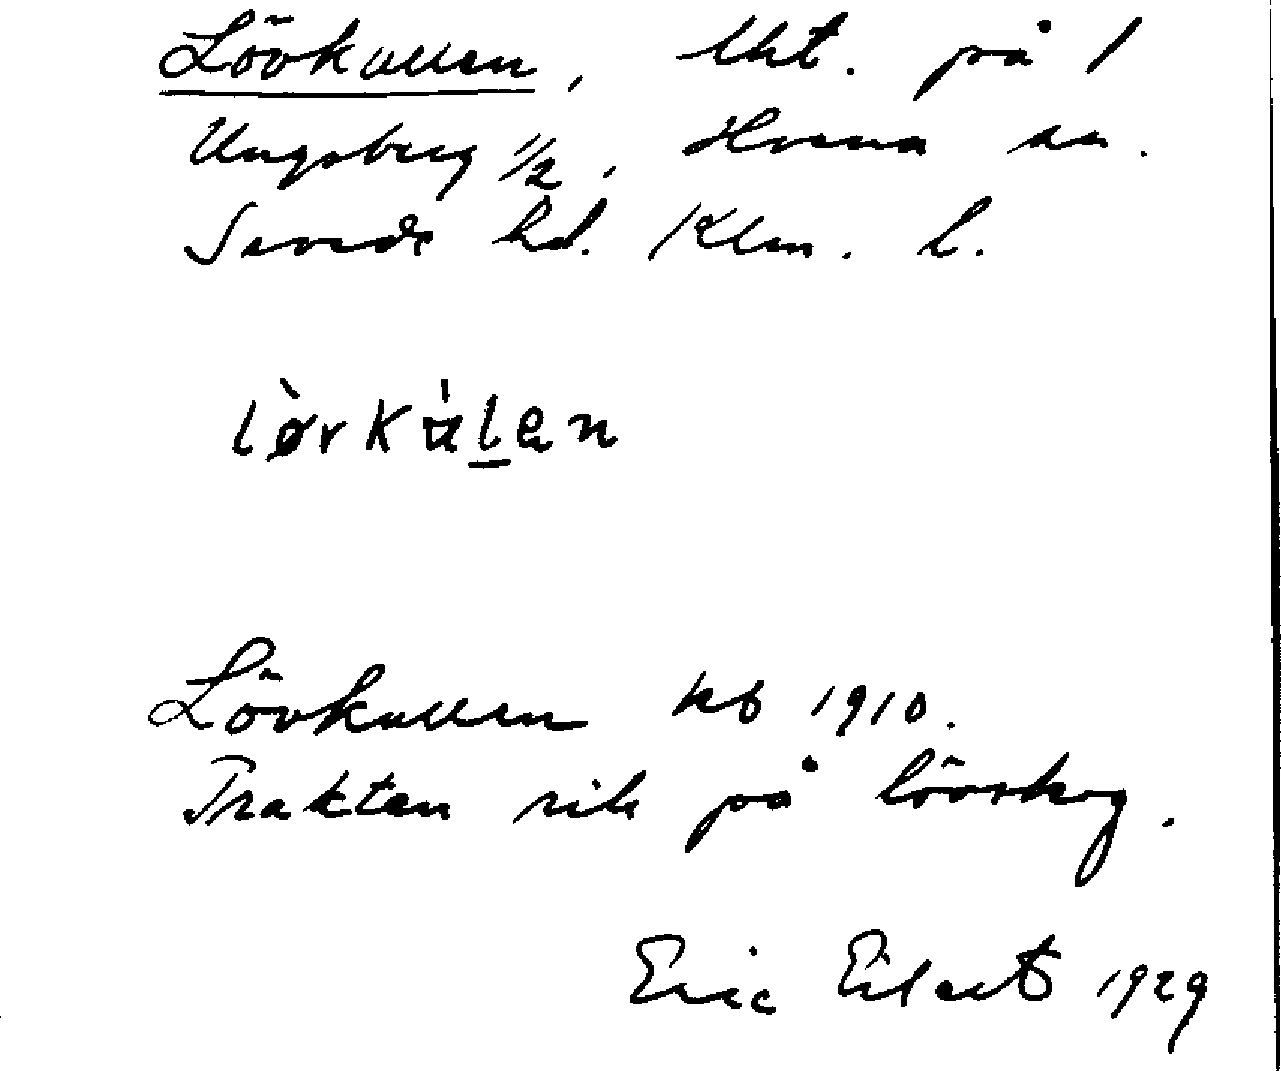 Lövkullen, lht. på 1
Ungsberg 1/2, Hvena sn.
Sevede hd. Klm. l.
lø̀vku̍len
Lövkullen kb 1910.
Trakten rik på lövskog.
Eric Eilert 1929